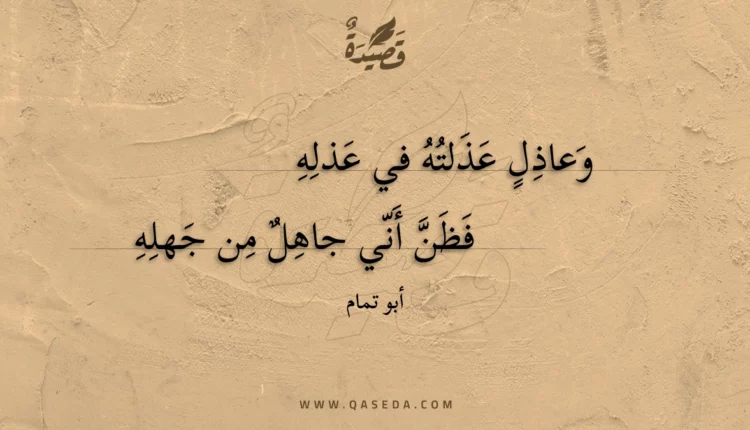 قَصِيْدَةٌ
وَعاذِلٍ عَذَلتُهُ في عَذلِهِ
فَظَنَّ أَنّي جاهِلٌ مِن جَهلِهِ
أبو تمام
WWW.QASEDA.COM